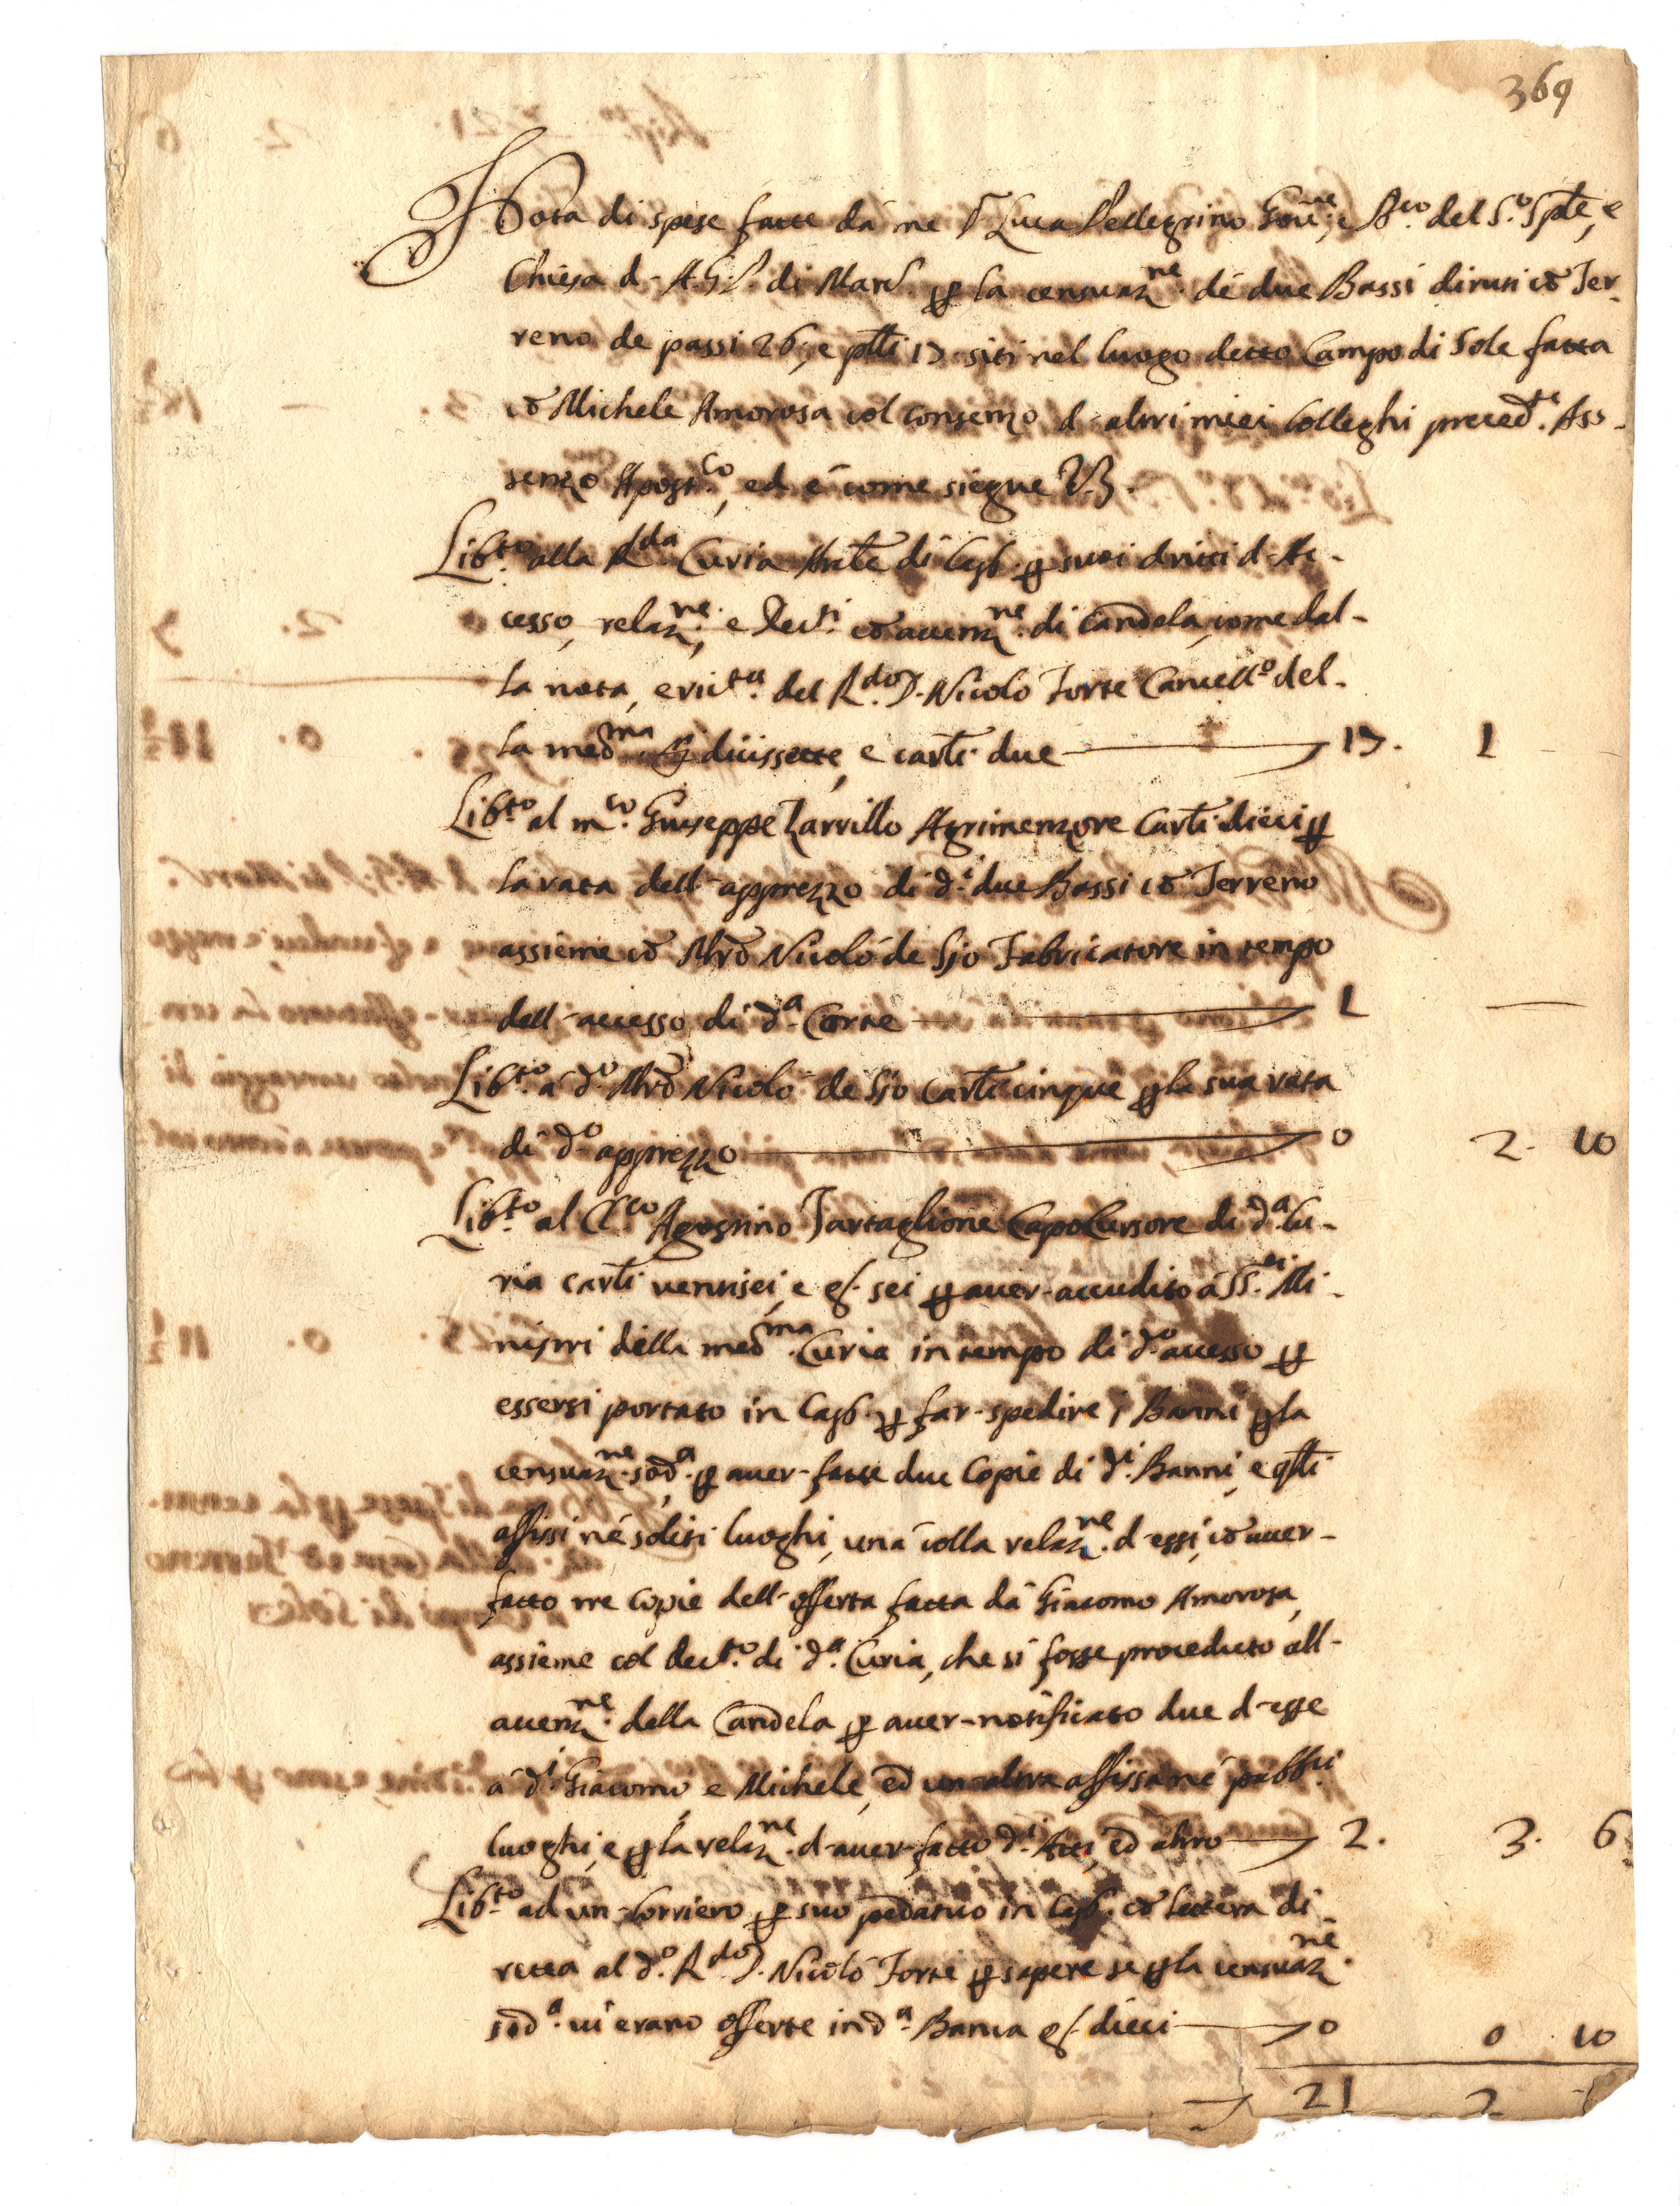 369
Nota di spese fatte dà me D. Luca Pellegrino Gov.ne, e B.co del S.o Sp.le, e
Chiesa d. A.G.P. di Marc. p la censuaz.ne di due Bassi diruti cō Ter-
reno de passi 26, e p̄tti 17 siti nel luogo detto Campo di Sole fatta
cō Michele Amorosa col consenzo d'altri miei Colleghi preced.te Ass-
senzo Apost.co, ed è come siegue
Lib.to alla R.da Curia di Cap. p suoi dritti d'Ac-
cesso, relaz.ne, e Dec.ti cō accenz.ne di candela, come dal-
la nota, e ric.ta del R.do D. Nicolo Forte Cancell.o del-
la med.ma diicissette, e carl.i due 17. 1
Lib.to al m.co Giuseppe Zarrillo Agrimenzore Carl.i dieci p
la rata dell'apprezzo di d.i due Bassi cō Terreno
assieme cō Mrō Nicolò de Sio Fabricatore in tempo
dell'accesso di d.a Corte 1 —
Lib.to à d.o Mrō Nicolò de Sio Carl.i cinque p la sua rata
di d.o apprezzo 0 2. 10
Lib.to al Cl.co Agostino Tartaglione Capo Cursore di d.a Cu-
ria carl.i ventisei, e g. sei p aver accudito à SS.ri Mi-
nistri della med.ma Curia in tempo di d.o accesso p
essersi portato in Cap. p far spedire i Banni p la
censuaz.ne sod.a, p aver fatte due Copie di d.i Banni, e q̄sti
affissi nè soliti luoghi, unà colla relaz.ne d'essi, cō aver
fatto tre copie dell'offerta fatta dà Giacomo Amorosa,
assieme col dec.to di d.a Curia, che si fosse proceduto all'
accenz.ne della Candela, p aver notificato due d'esse
à d.i Giacomo e Michele, ed un altra affissa nè pubb.ci
luoghi, e p la relaz.ne d'aver fatto d.i Atti, ed altro 2. 3. 6
Lib.to ad un Corriero p suo pedatico in Cap. cō lettera di-
retta al d.o R.do D. Nicolò Forte p sapere se p la censuaz.ne
sod.a vi erano offerte in d.a Banca g. dieci 0 0 10
21 2